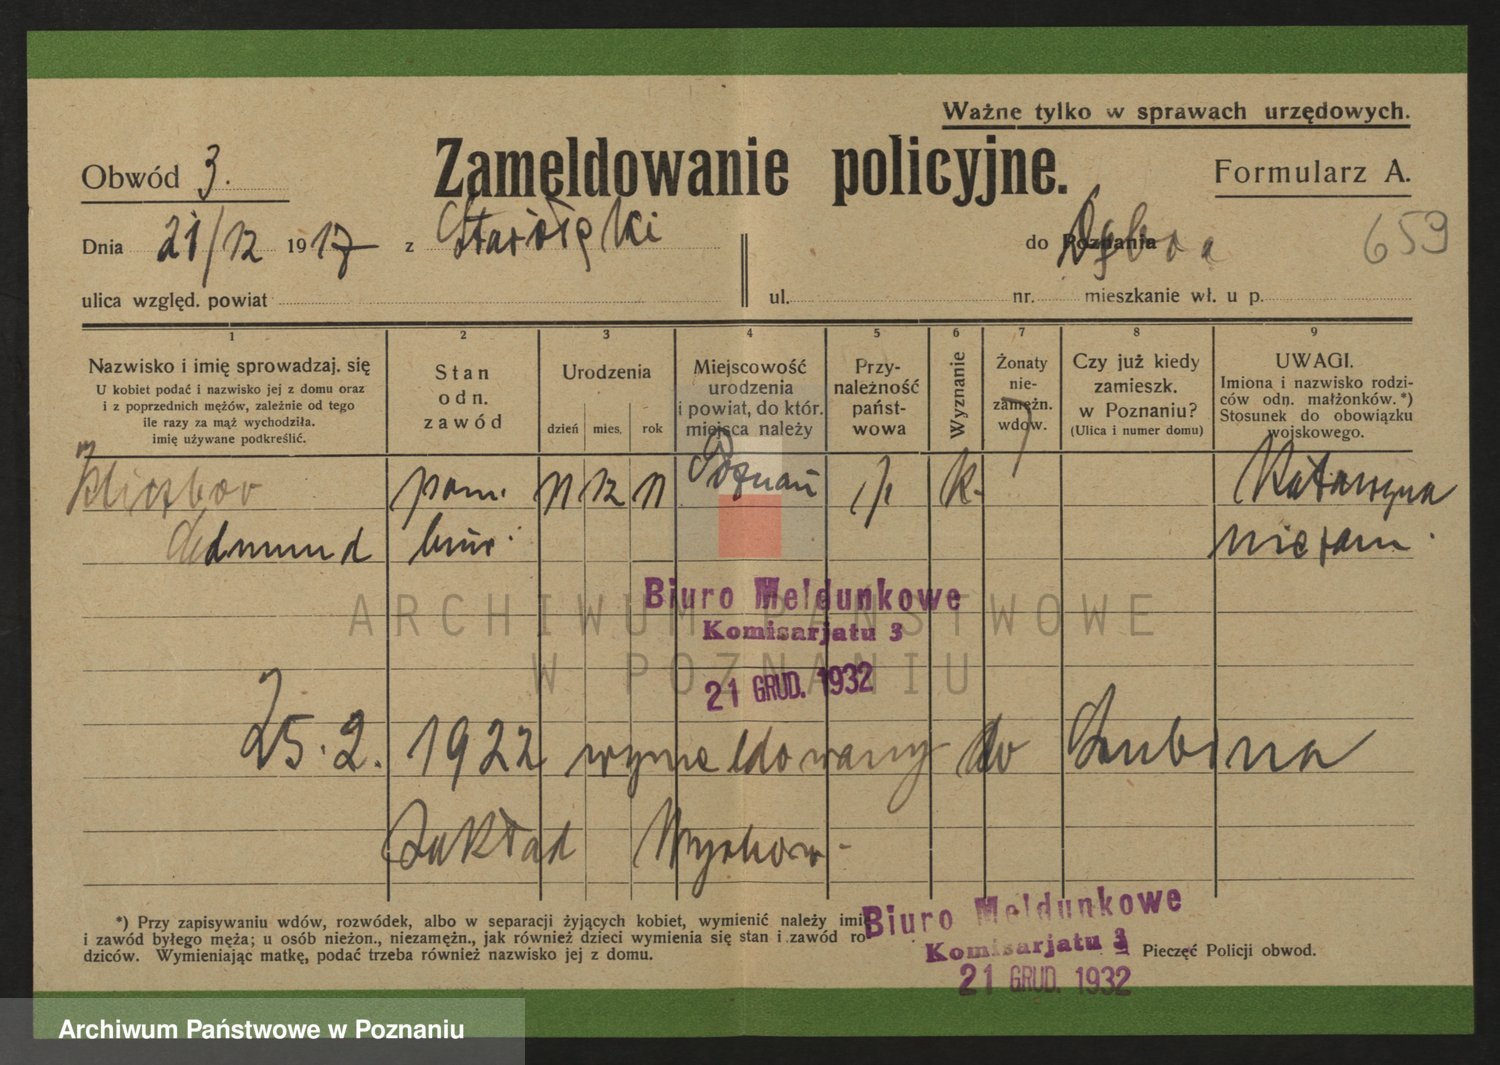 Ważne tylko w sprawach urzędowych.
Obwód 3.
Zameldowanie policyjne.
Formularz A.
Dnia 21/12 1917 z Starołęki
do Poznania Dębca
659
ulica względ. powiat
ul. nr. mieszkanie wł. u p.
1 2 3 4 5 6 7 8 9
Nazwisko i imię sprowadzaj. się
U kobiet podać i nazwisko jej z domu oraz
i z poprzednich mężów, zależnie od tego
ile razy za mąż wychodziła.
imię używane podkreślić.
Stan
odn.
zawód
Urodzenia
dzień mies. rok
Miejscowość
urodzenia
i powiat, do któr.
miejsca należy
Przy-
należność
państ-
wowa
Wyznanie
Żonaty
nie-
zamężn.
wdow.
Czy już kiedy
zamieszk.
w Poznaniu?
(Ulica i numer domu)
UWAGI.
Imiona i nazwisko rodzi-
ców odn. małżonków.*)
Stosunek do obowiązku
wojskowego.
pom. 11 12 11 Poznań p. k. Katarzyna
Edmund biur. niezam.
Biuro Meldunkowe
Komisarjatu 3
21 GRUD. 1932
25.2. 1922 wymeldowany do Szubina
Zakład Wychow.
*) Przy zapisywaniu wdów, rozwódek, albo w separacji żyjących kobiet, wymienić należy imię
i zawód byłego męża; u osób nieżon., niezamężn., jak również dzieci wymienia się stan i zawód ro-
dziców. Wymieniając matkę, podać trzeba również nazwisko jej z domu.
Biuro Meldunkowe
Komisarjatu 3
21 GRUD. 1932
Pieczęć Policji obwod.
ARCHIWUM PAŃSTWOWE
W POZNANIU
Archiwum Państwowe w Poznaniu